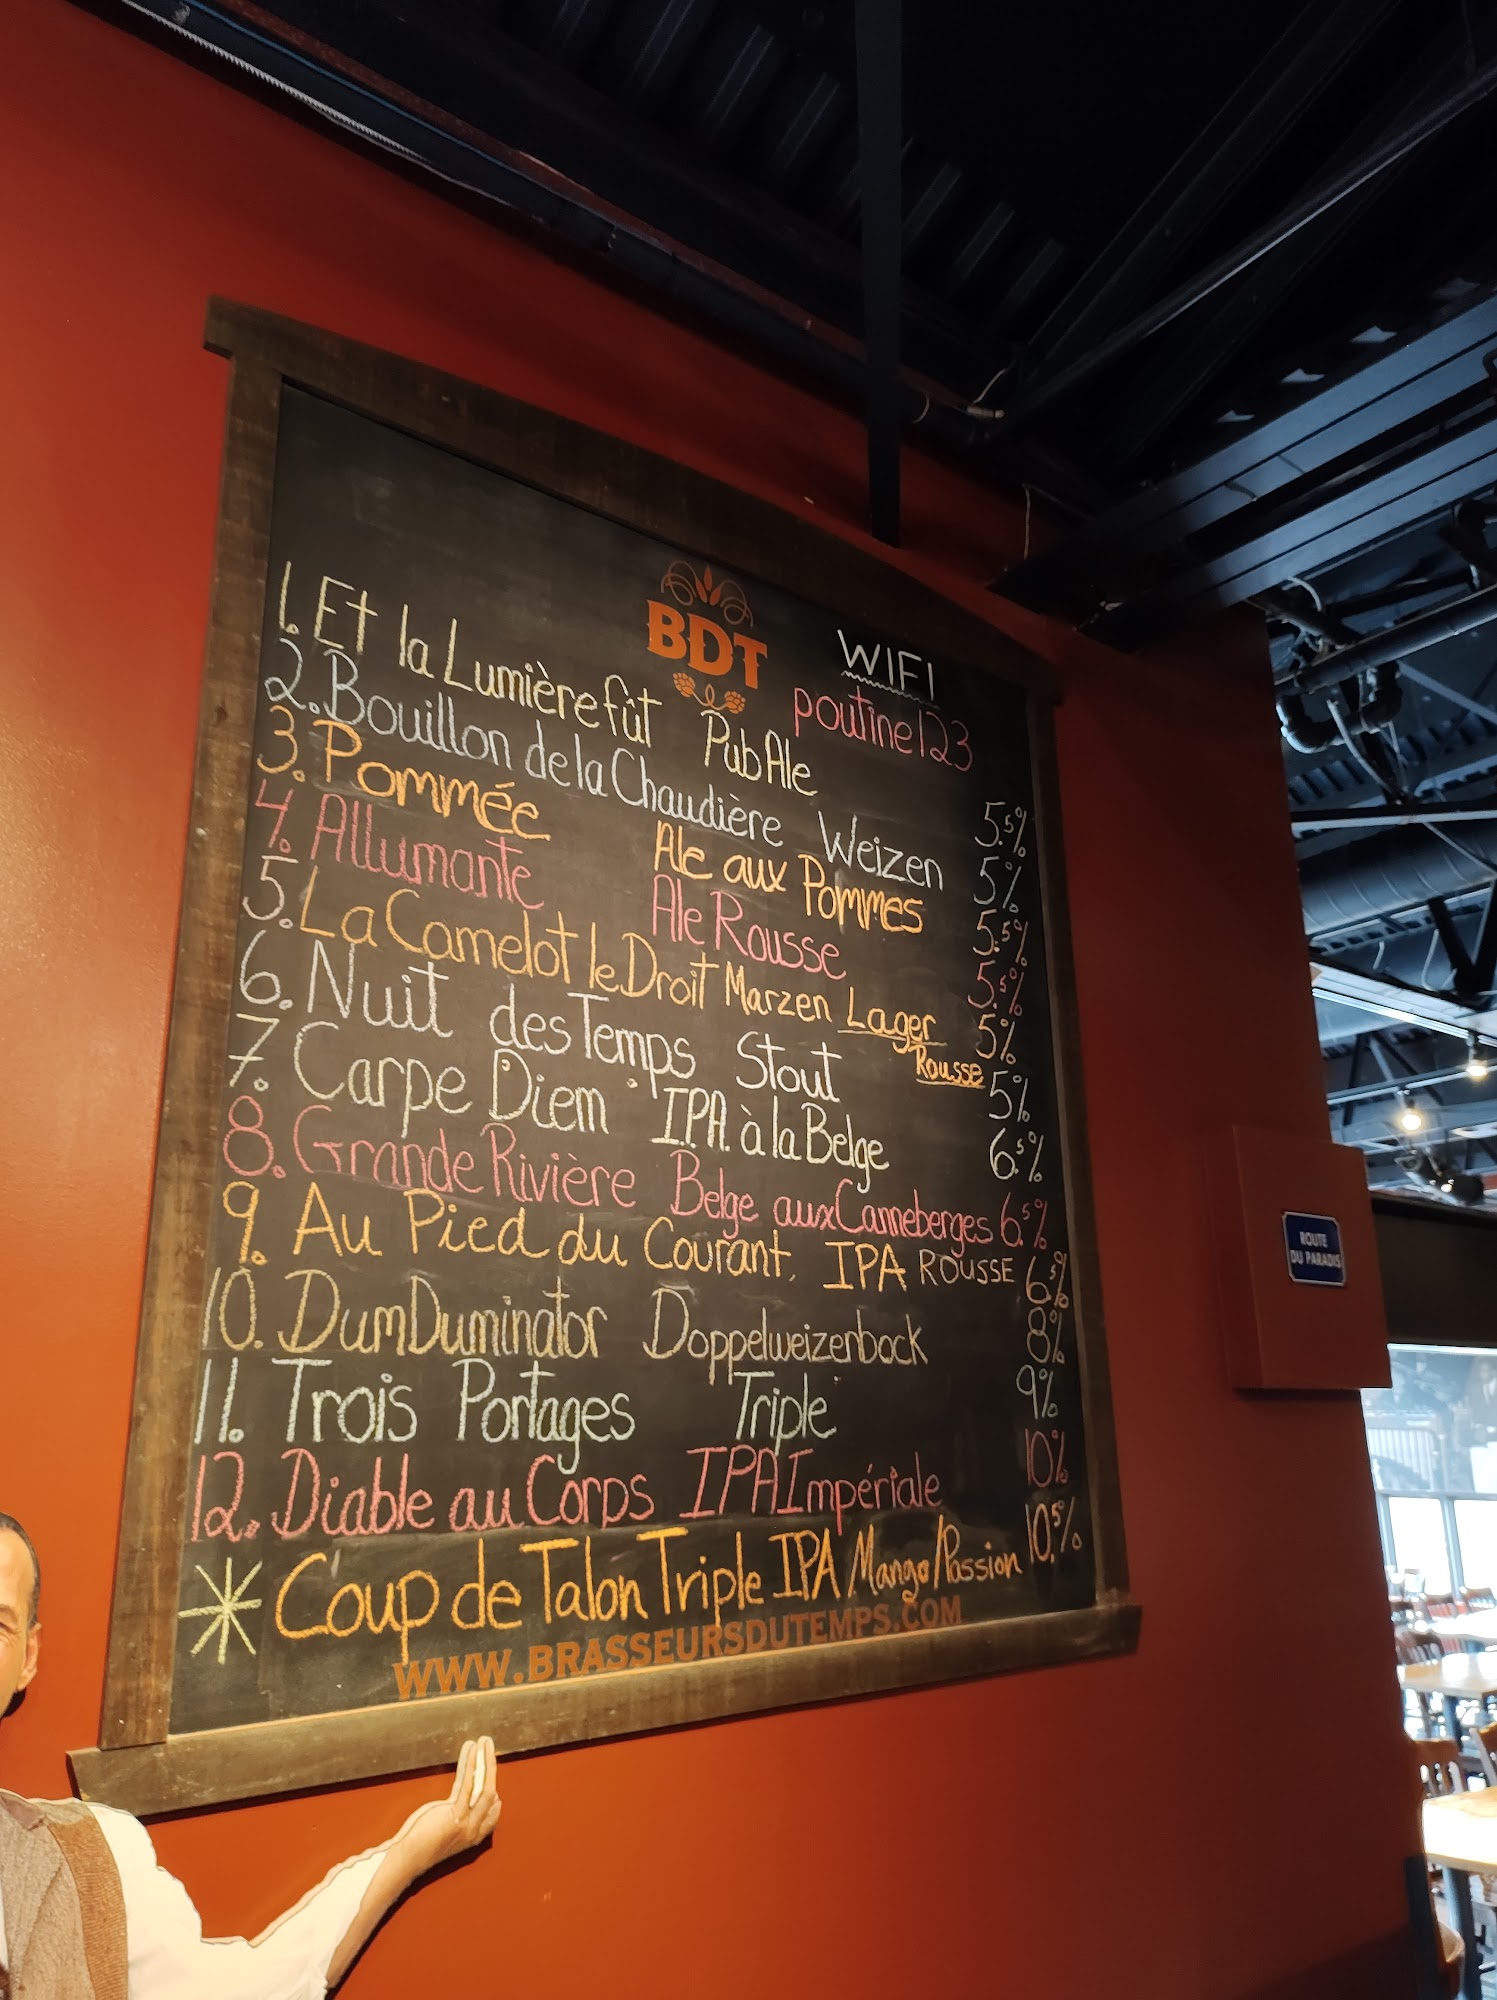 BDT
WIFI
poutine123
1. Et la Lumière fût Pub Ale 5.5%
2. Bouillon de la Chaudière Weizen 5%
3. Pommée Ale aux Pommes 5.5%
4. Allumante Ale Rousse 5.5%
5. La Camelot le Droit Marzen Lager Rousse 5%
6. Nuit des Temps Stout 5%
7. Carpe Diem I.P.A. à la Belge 6.5%
8. Grande Rivière Belge aux Canneberges 6.5%
9. Au Pied du Courant, IPA ROUSSE 6.5%
10. DumDuminator Doppelweizenbock 8%
11. Trois Portages Triple 9%
12. Diable au Corps IPA Impériale 10%
* Coup de Talon Triple IPA Mango/Passion 10.5%
WWW.BRASSEURSDUTEMPS.COM
ROUTE
DU PARADIS